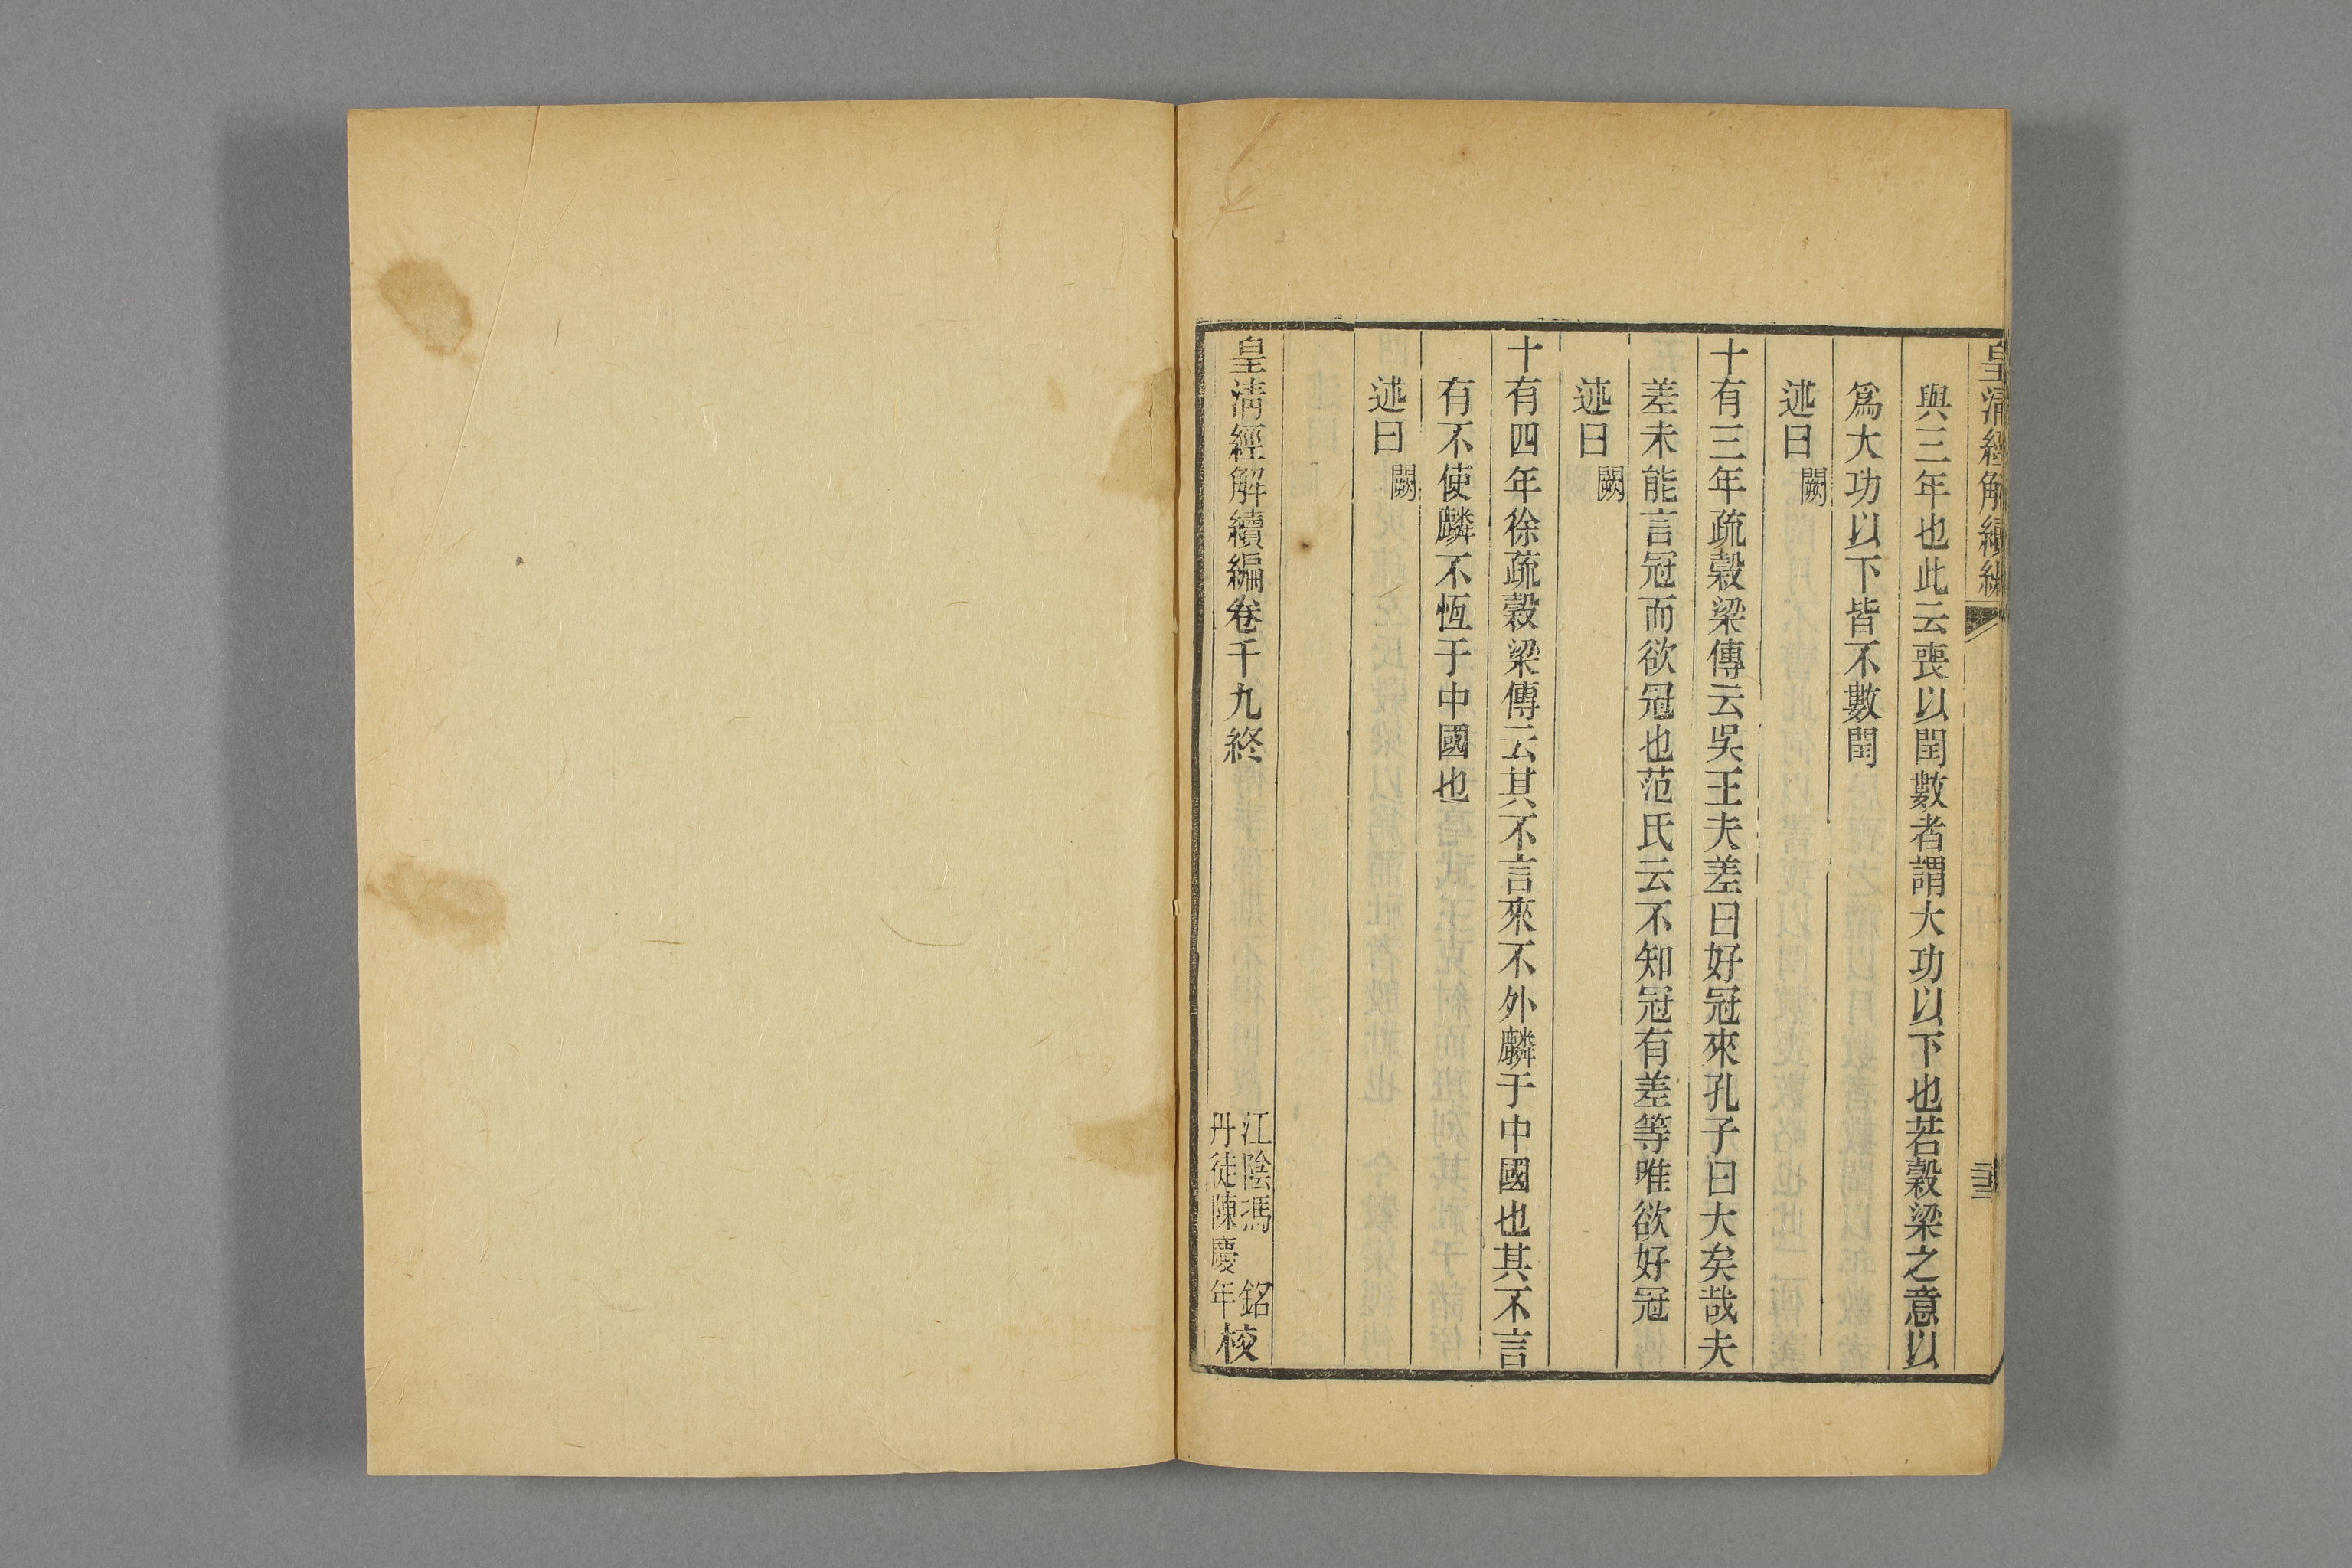 皇清經解續編
三三
與三年也此云喪以閏數者謂大功以下也若穀梁之意以
爲大功以下皆不數閏
述曰闕
十有三年疏穀梁傳云吳王夫差曰好冠來孔子曰大矣哉夫
差未能言冠而欲冠也范氏云不知冠有差等唯欲好冠
述曰闕
十有四年徐疏穀梁傳云其不言來不外麟于中國也其不言
有不使麟不恆于中國也
述曰闕
皇清經解續編卷千九終
江陰馮銘
丹徒陳慶年校